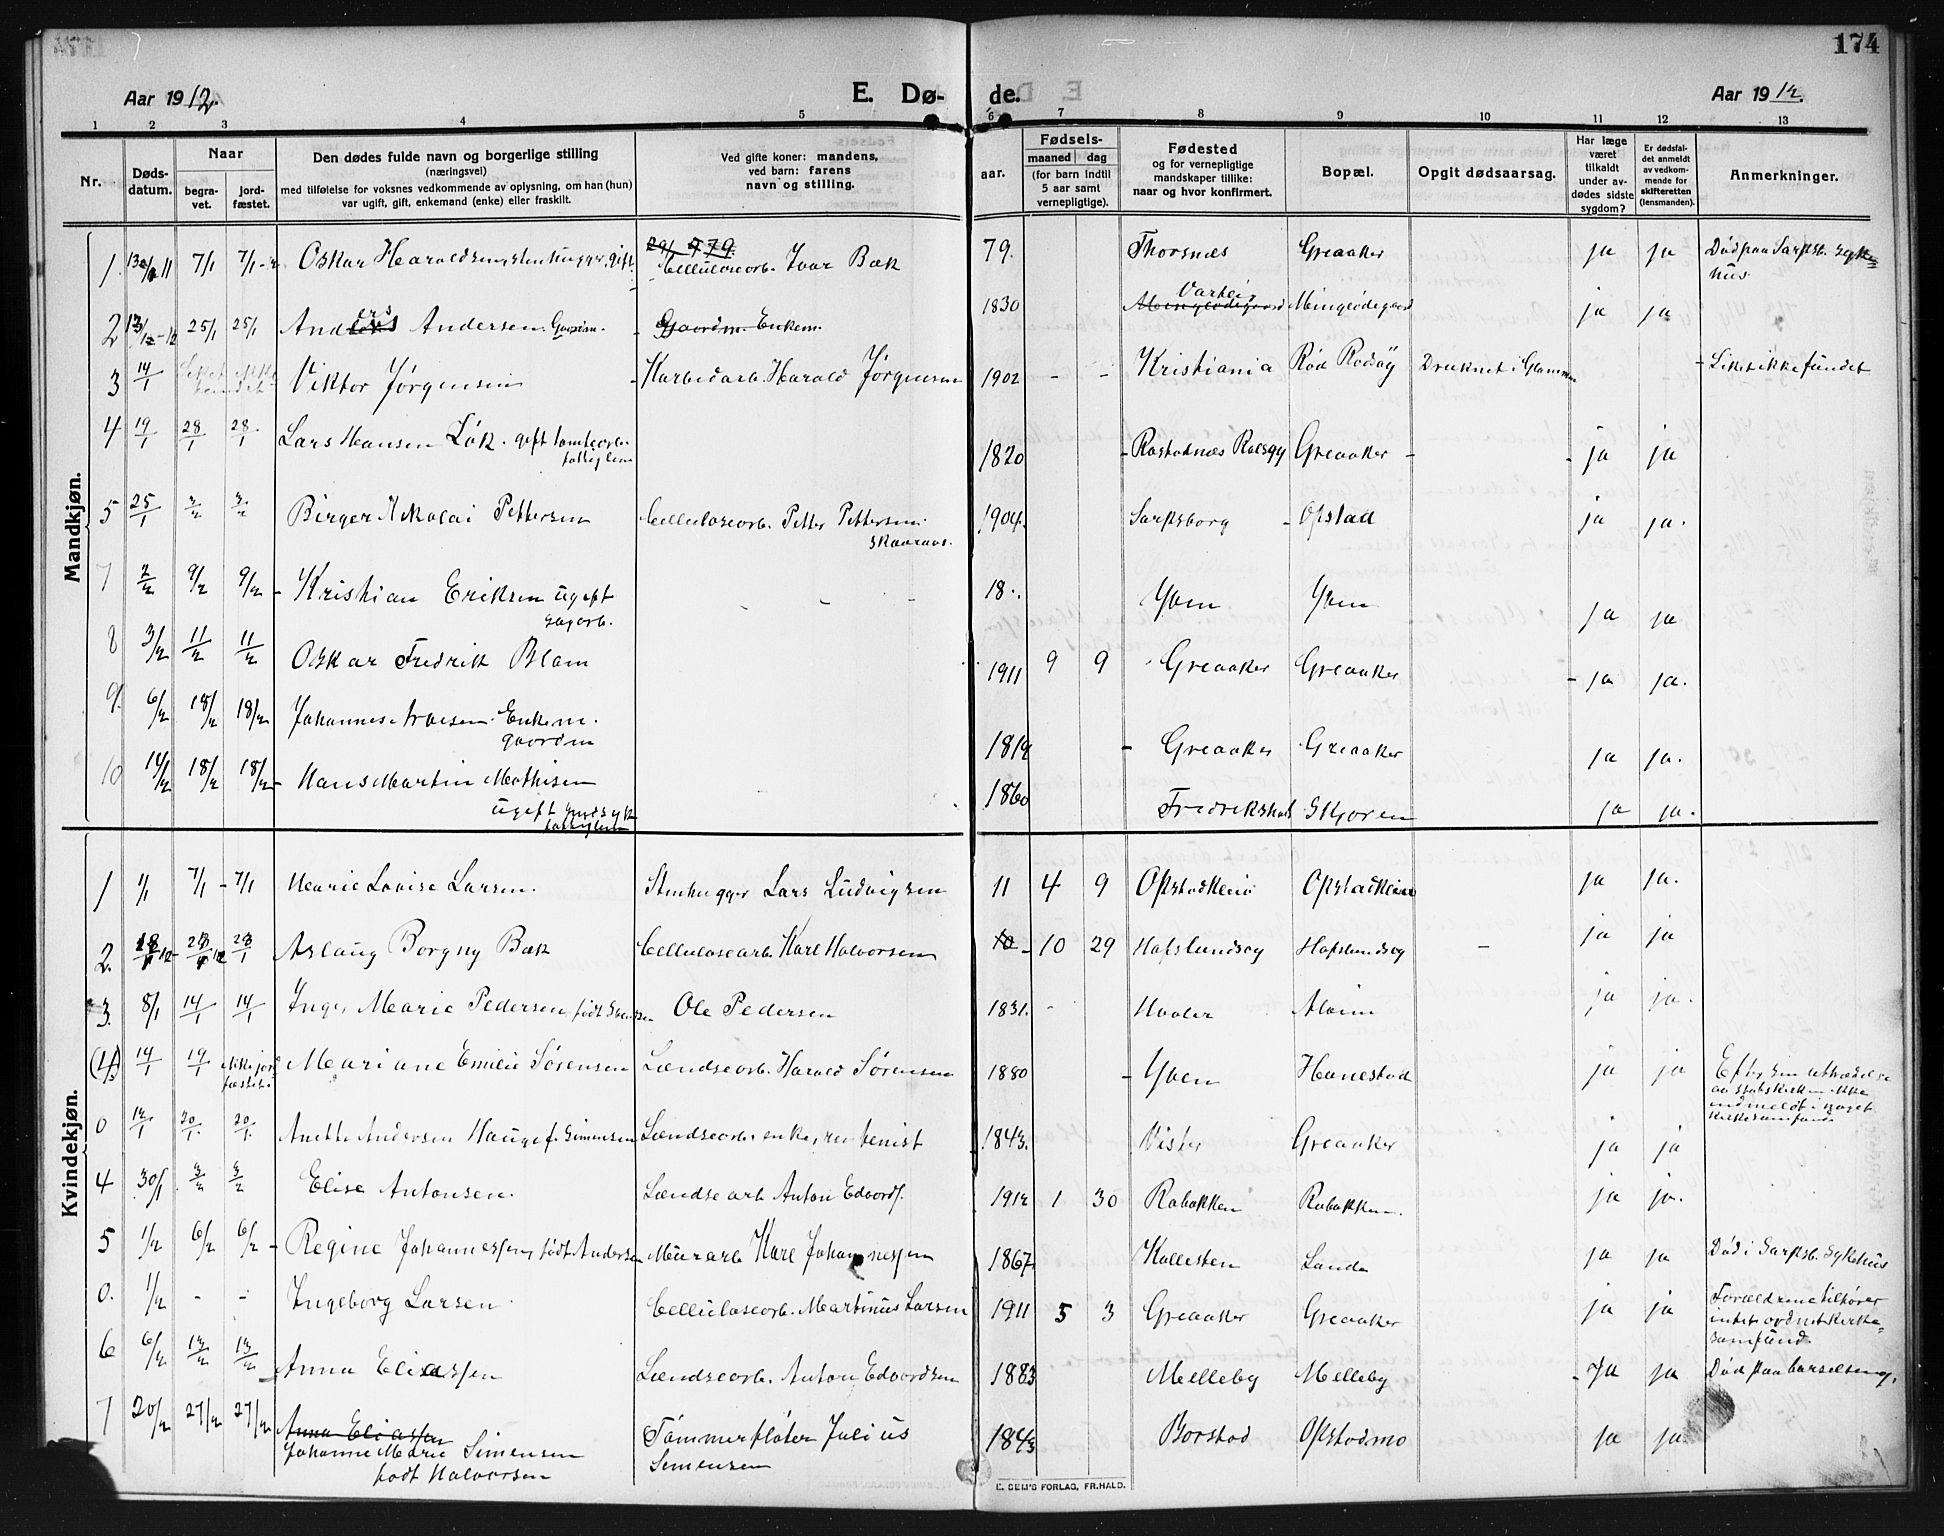 174
Aar 1912.
E. Dø-
de.
Aar 1912.
1 2 3 4 5 6 7 8 9 10 11 12 13
Nr.
Døds-
datum.
Naar
begra-
vet.
jord-
fæstet.
Den dødes fulde navn og borgerlige stilling
(næringsvei)
med tilføielse for voksnes vedkommende av oplysning, om han (hun)
var ugift, gift, enkemand (enke) eller fraskilt.
Ved gifte koner: mandens,
ved barn: farens
navn og stilling.
Fødsels-
aar.
maaned dag
(for barn indtil
5 aar samt
vernepligtige).
Fødested
og for vernepligtige
mandskaper tillike:
naar og hvor konfirmert.
Bopæl.
Opgit dødsaarsag.
Har læge
været
tilkaldt
under av-
dødes sidste
sygdom?
Er dødsfal-
det anmeldt
av vedkom-
mende for
skifteretten
(lensmanden).
Anmerkninger.
Mandkjøn.
1. 7/1 7/1 Oskar Haraldsen, stenhugger, gift. Celluloseorb. Ivar Bæk 79. Thorsnæs Greaaker ja ja Død paa Sarpsb. syke-
hus.
2 25/1 25/1 Anders Andersen Gaardm. Gaardm. Enkem. 1830 Varteig Mingeødegaard ja ja
3 14/1 Viktor Jørgensen Karbidarb. Harald Jørgensen 1902 - - Kristiania Rød Rodøy Druknet i Glommen - Liket ikke fundet
4 19/1 28/1 28/1 Lars Hansen Løk. gift 1820 Greaaker ja ja
5 25/1 3/2 3/2 Birger Nikolai Pettersen Celluloseorb. Petter Pettersen 1904. Sarpsborg Opstad ja ja.
7 2/2 9/2 9/2 Kristian Eriksen ugift
sagarb. 18 Yven Yven ja ja
8 3/2 11/2 11/2 Oskar Fredrik Blom 1911 9 9 Greaaker Greaaker ja ja.
9. 6/2 18/2 18/2 Johannes Enkem.
gaardm 1812 Greaaker Greaaker ja ja.
10 14/2 18/2 18/2 Hans Martin Mathisen
ugift sindsyk 1860 Fredrikshald Skjoren ja ja.
Kvindekjøn.
1 1/1 7/1 7/1 Marie Lovise Larsen. Stenhugger Lars Ludvigsen 11 4 9 Opstadkleiv Opstadkleiv ja ja.
2. Aslaug Borgny Bæk Cellulosearb. Karl Halvorsen 10 29 Hafslundsøy Hafslundsøy - ja ja
3. 8/1 14/1 14/1 Inger Marie Pedersen, født Ole Pedersen 1831. - Alvim ja ja.
14/1 19/1 Ikke jord
fæstet Mariane Emilie Sørensen Lændseorb. Harald Sørensen 1880 Yven Hanestad ja ja Efter sin uttrædelse
av statskirken ikke
indmeldt i noget
kirkesamfund
0 12/1 20/1 20/1 Anette Andersen Hauge f. Simensen Lændseorb. enke, 1843. Vister Greaaker ja ja
4 30/1 3/2 3/2 Elise Antonsen. Lændsearb Anton Edvards. 1912 1 30 Rabakken Rabakken. ja ja.
5 1/2 6/2 6/2 Regine Johannessen, født Andersen Murarb Karl Johannessen 1867. Kallesten Lande ja ja Død i Sarpsb. Sykehus
0. 1/2 - - Ingeborg Larsen. Celluloseorb. Martinus Larsen 1911 5 3 Greaaker Greaaker ja ja Forældrene tilhører
intet ordnet kirke-
samfund.
6 6/2 13/2 13/2 Anna Eliassen Lændseorb. Anton Edvardsen 1883 Melleby Melleby ja ja Død paa barselseng.
7 20/2 27/2 27/2 Anna Eliassen
Johanne Marie Simensen
født Halvorsen Tømmerfløter Julius
Simensen 1843 Borstad Opstadmo ja ja
E. SEM'S FORLAG, FR.HALD.